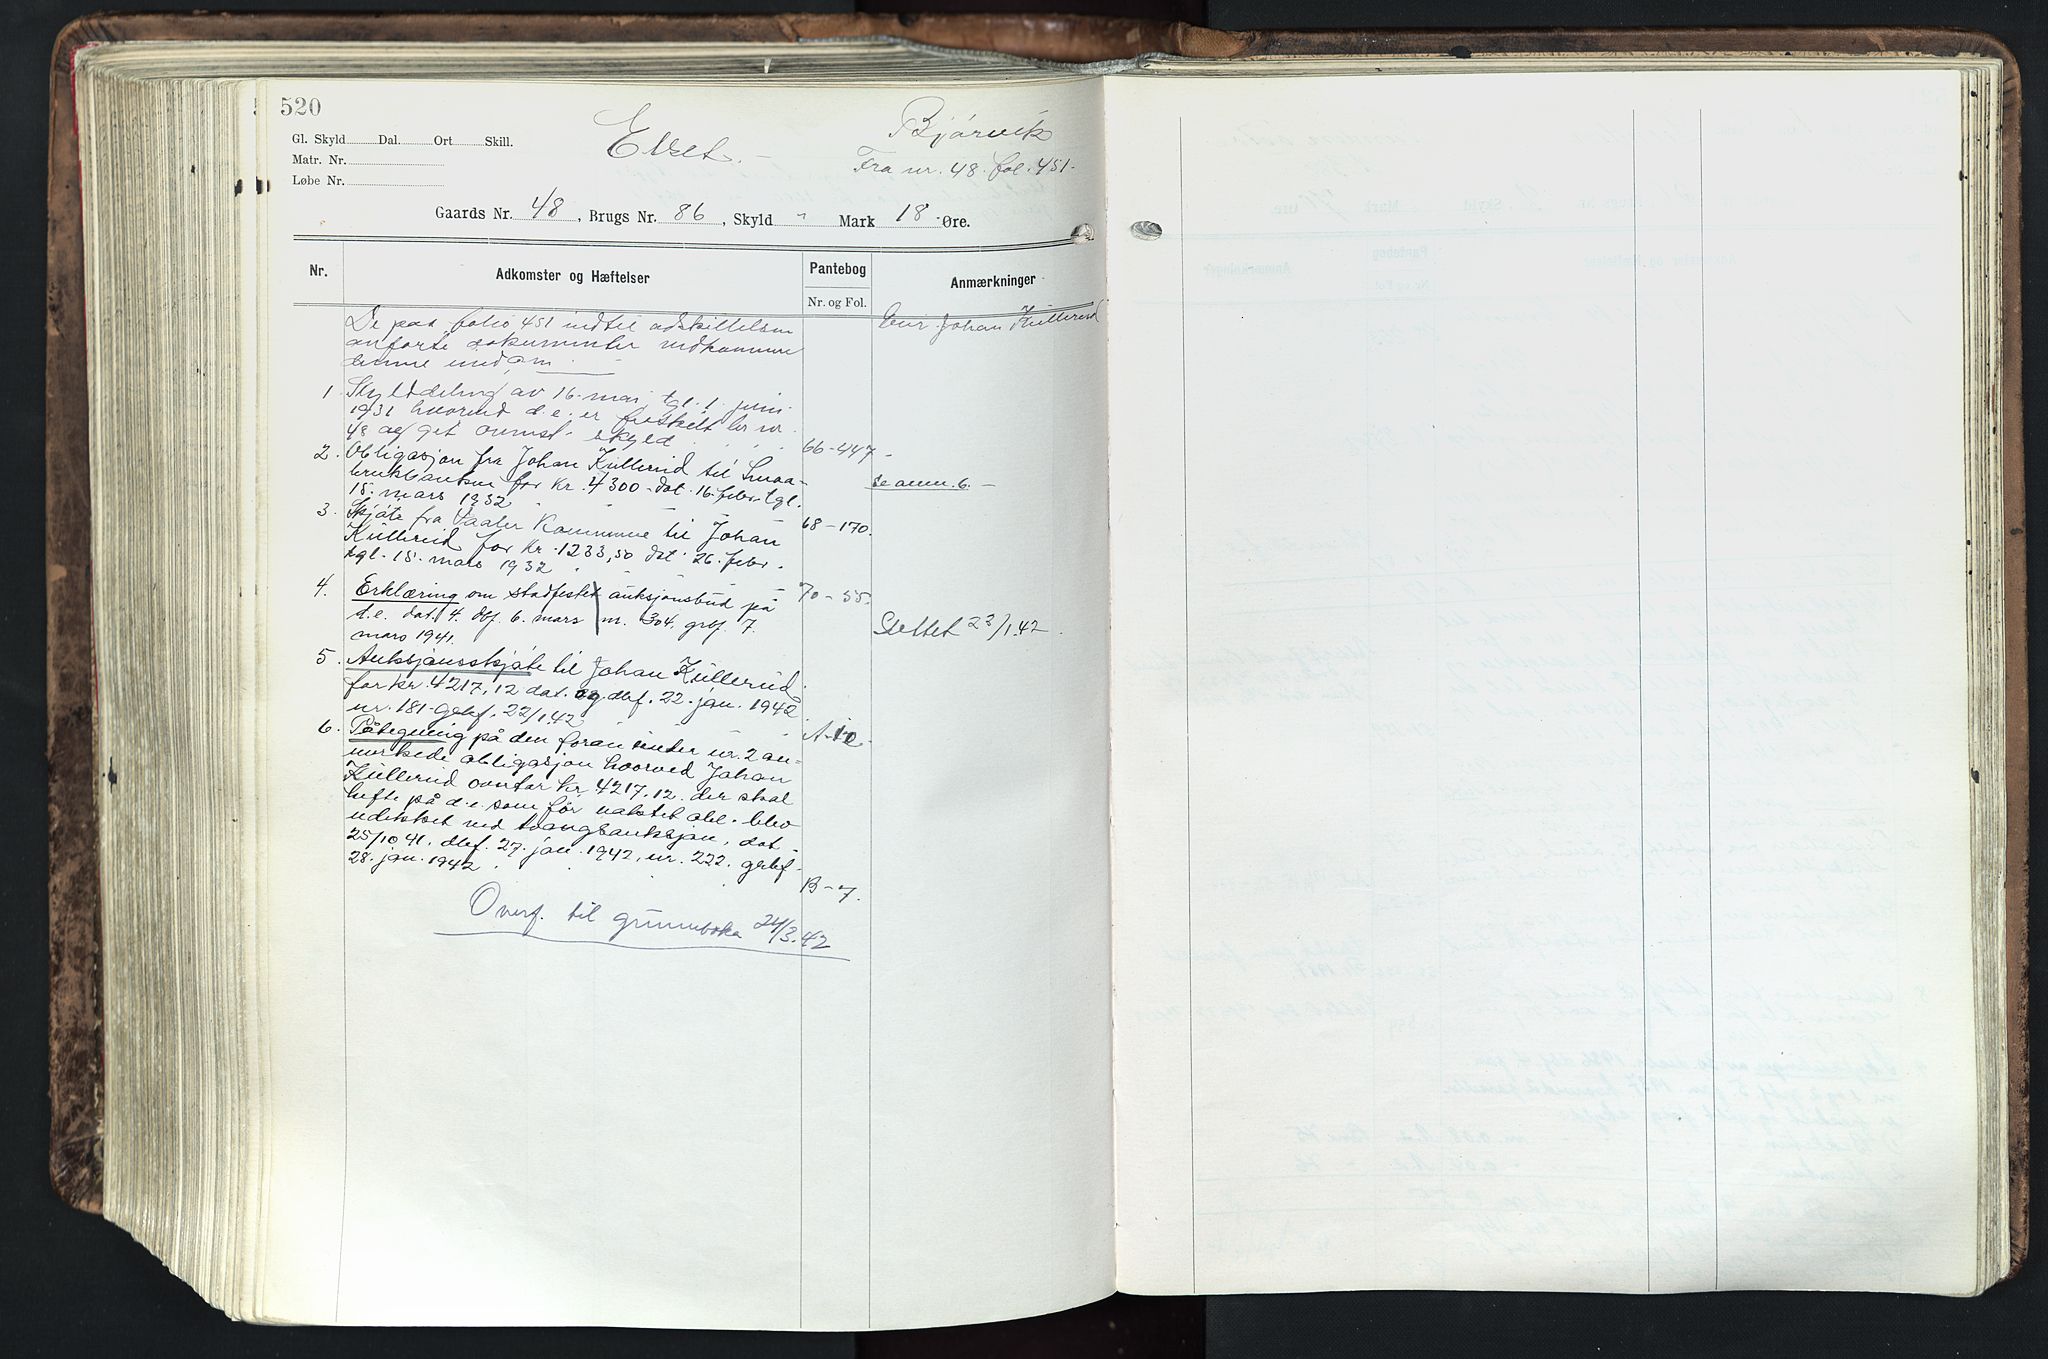 520
Gl. Skyld Dal. Ort Skill.
Matr. Nr.
Løbe Nr.
Bjørvik
Fra nr. 48. fol. 451.
Gaards Nr. 48, Brugs Nr. 86, Skyld " Mark 18 Øre.
Nr. Adkomster og Hæftelser Pantebog Anmærkninger
Nr. og Fol.
De paa folio 451 indtil adskillelsen
anførte dokumenter vedkommer
denne eiendom.
Eier Johan Küllerud
1. Skylddeling av 16. mai, tgl. 1. juni
1931 hvorved d.e. er fraskilt br nr.
48 og git ovenst. skyld 66-447
2. Obligasjon fra Johan Küllerud til Smaa-
brukbanken for kr. 4300 - dat. 16. febr. tgl.
15. mars 1932 68-170.
se anm. 6. -
3. Skjøte fra Vaaler Kommune til Johan
Küllerud for kr. 1233,50 dat. 26. febr.
tgl. 15. mars 1932 70-55.
4. Erklæring om stadfestet auksjonsbud på
d.e. dat. 4. dbf. 6. mars nr. 304. grbf. 7.
mars 1941.
Slettet 22/1.42.
5. Auksjonsskjøte til Johan Küllerud
for kr. 4217,12 dat. og dbf. 22. jan. 1942
nr. 181. grbf. 22/1.42 A-12.
6. Påtegning på den foran under nr. 2 an-
merkede obligasjon hvorved Johan
Küllerud overtar kr. 4217.12. der skal
hefte på d.e. som før nevnte obl. blev
udekket ved tvangsauksjon, dat.
25/10 41, dbf. 27. jan. 1942, nr. 222. grbf.
28. jan. 1942. B-7.
Overf. til grunnboka 24/3.42